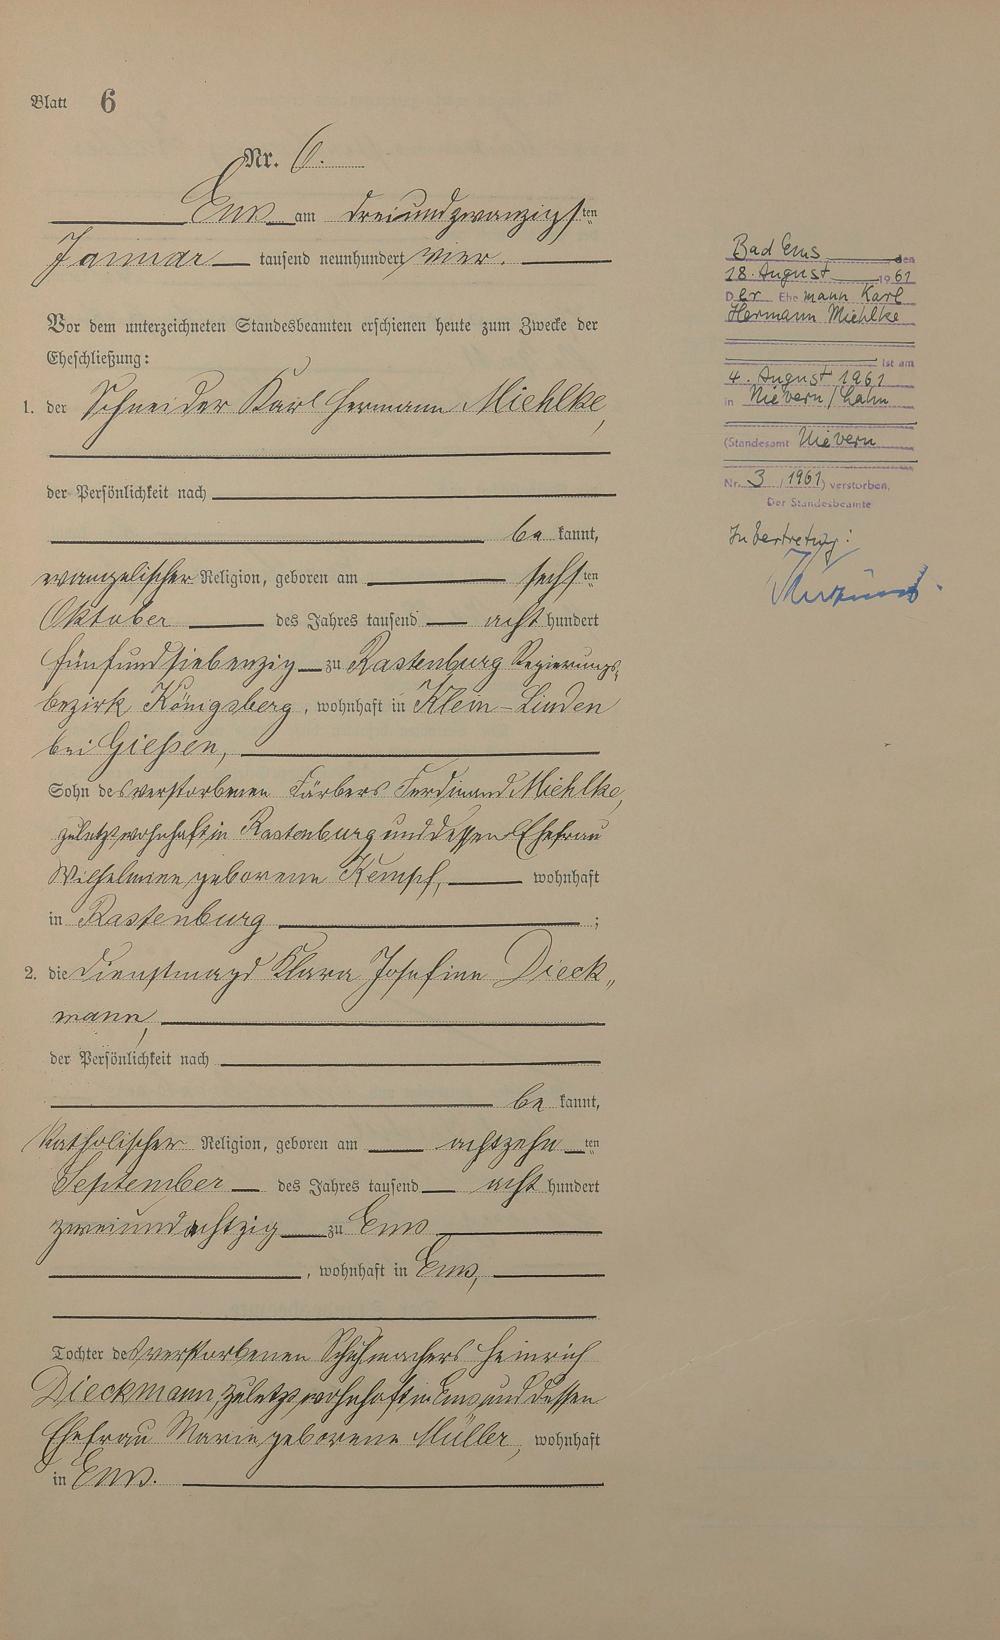 Blatt 6
Nr. 6.
Ems am dreiundzwanzigsten
Januar tausend neunhundert vier.
Vor dem unterzeichneten Standesbeamten erschienen heute zum Zwecke der
Eheschließung:
1. der Schneider Karl Hermann Miehlke,
der Persönlichkeit nach
be kannt,
evangelischer Religion, geboren am sechsten
Oktober des Jahres tausend acht hundert
fünfundsiebenzig zu Rastenburg Regierungs-
bezirk Königsberg, wohnhaft in Klein-Linden
bei Gießen,
Sohn des verstorbenen Färbers Ferdinand Miehlke,
zuletzt wohnhaft in Rastenburg und dessen Ehefrau
Wilhelmine geborene Kempf, wohnhaft
in Rastenburg ;
2. die Dienstmagd Klara Josefine Dieck„
mann,
der Persönlichkeit nach
be kannt,
katholischer Religion, geboren am achtzehnten
September des Jahres tausend acht hundert
zweiundachtzig zu Ems
, wohnhaft in Ems,
Tochter des verstorbenen Schuhmachers Heinrich
Dieckmann, zuletzt wohnhaft in Ems und dessen
Ehefrau Marie geborene Müller, wohnhaft
in Ems.
Bad Ems den
18. August 1961
Der Ehemann Karl
Hermann Miehlke
ist am
4. August 1961
in Nievern/Lahn
(Standesamt Nievern
Nr. 3/1961) verstorben.
Der Standesbeamte
In Vertretung: